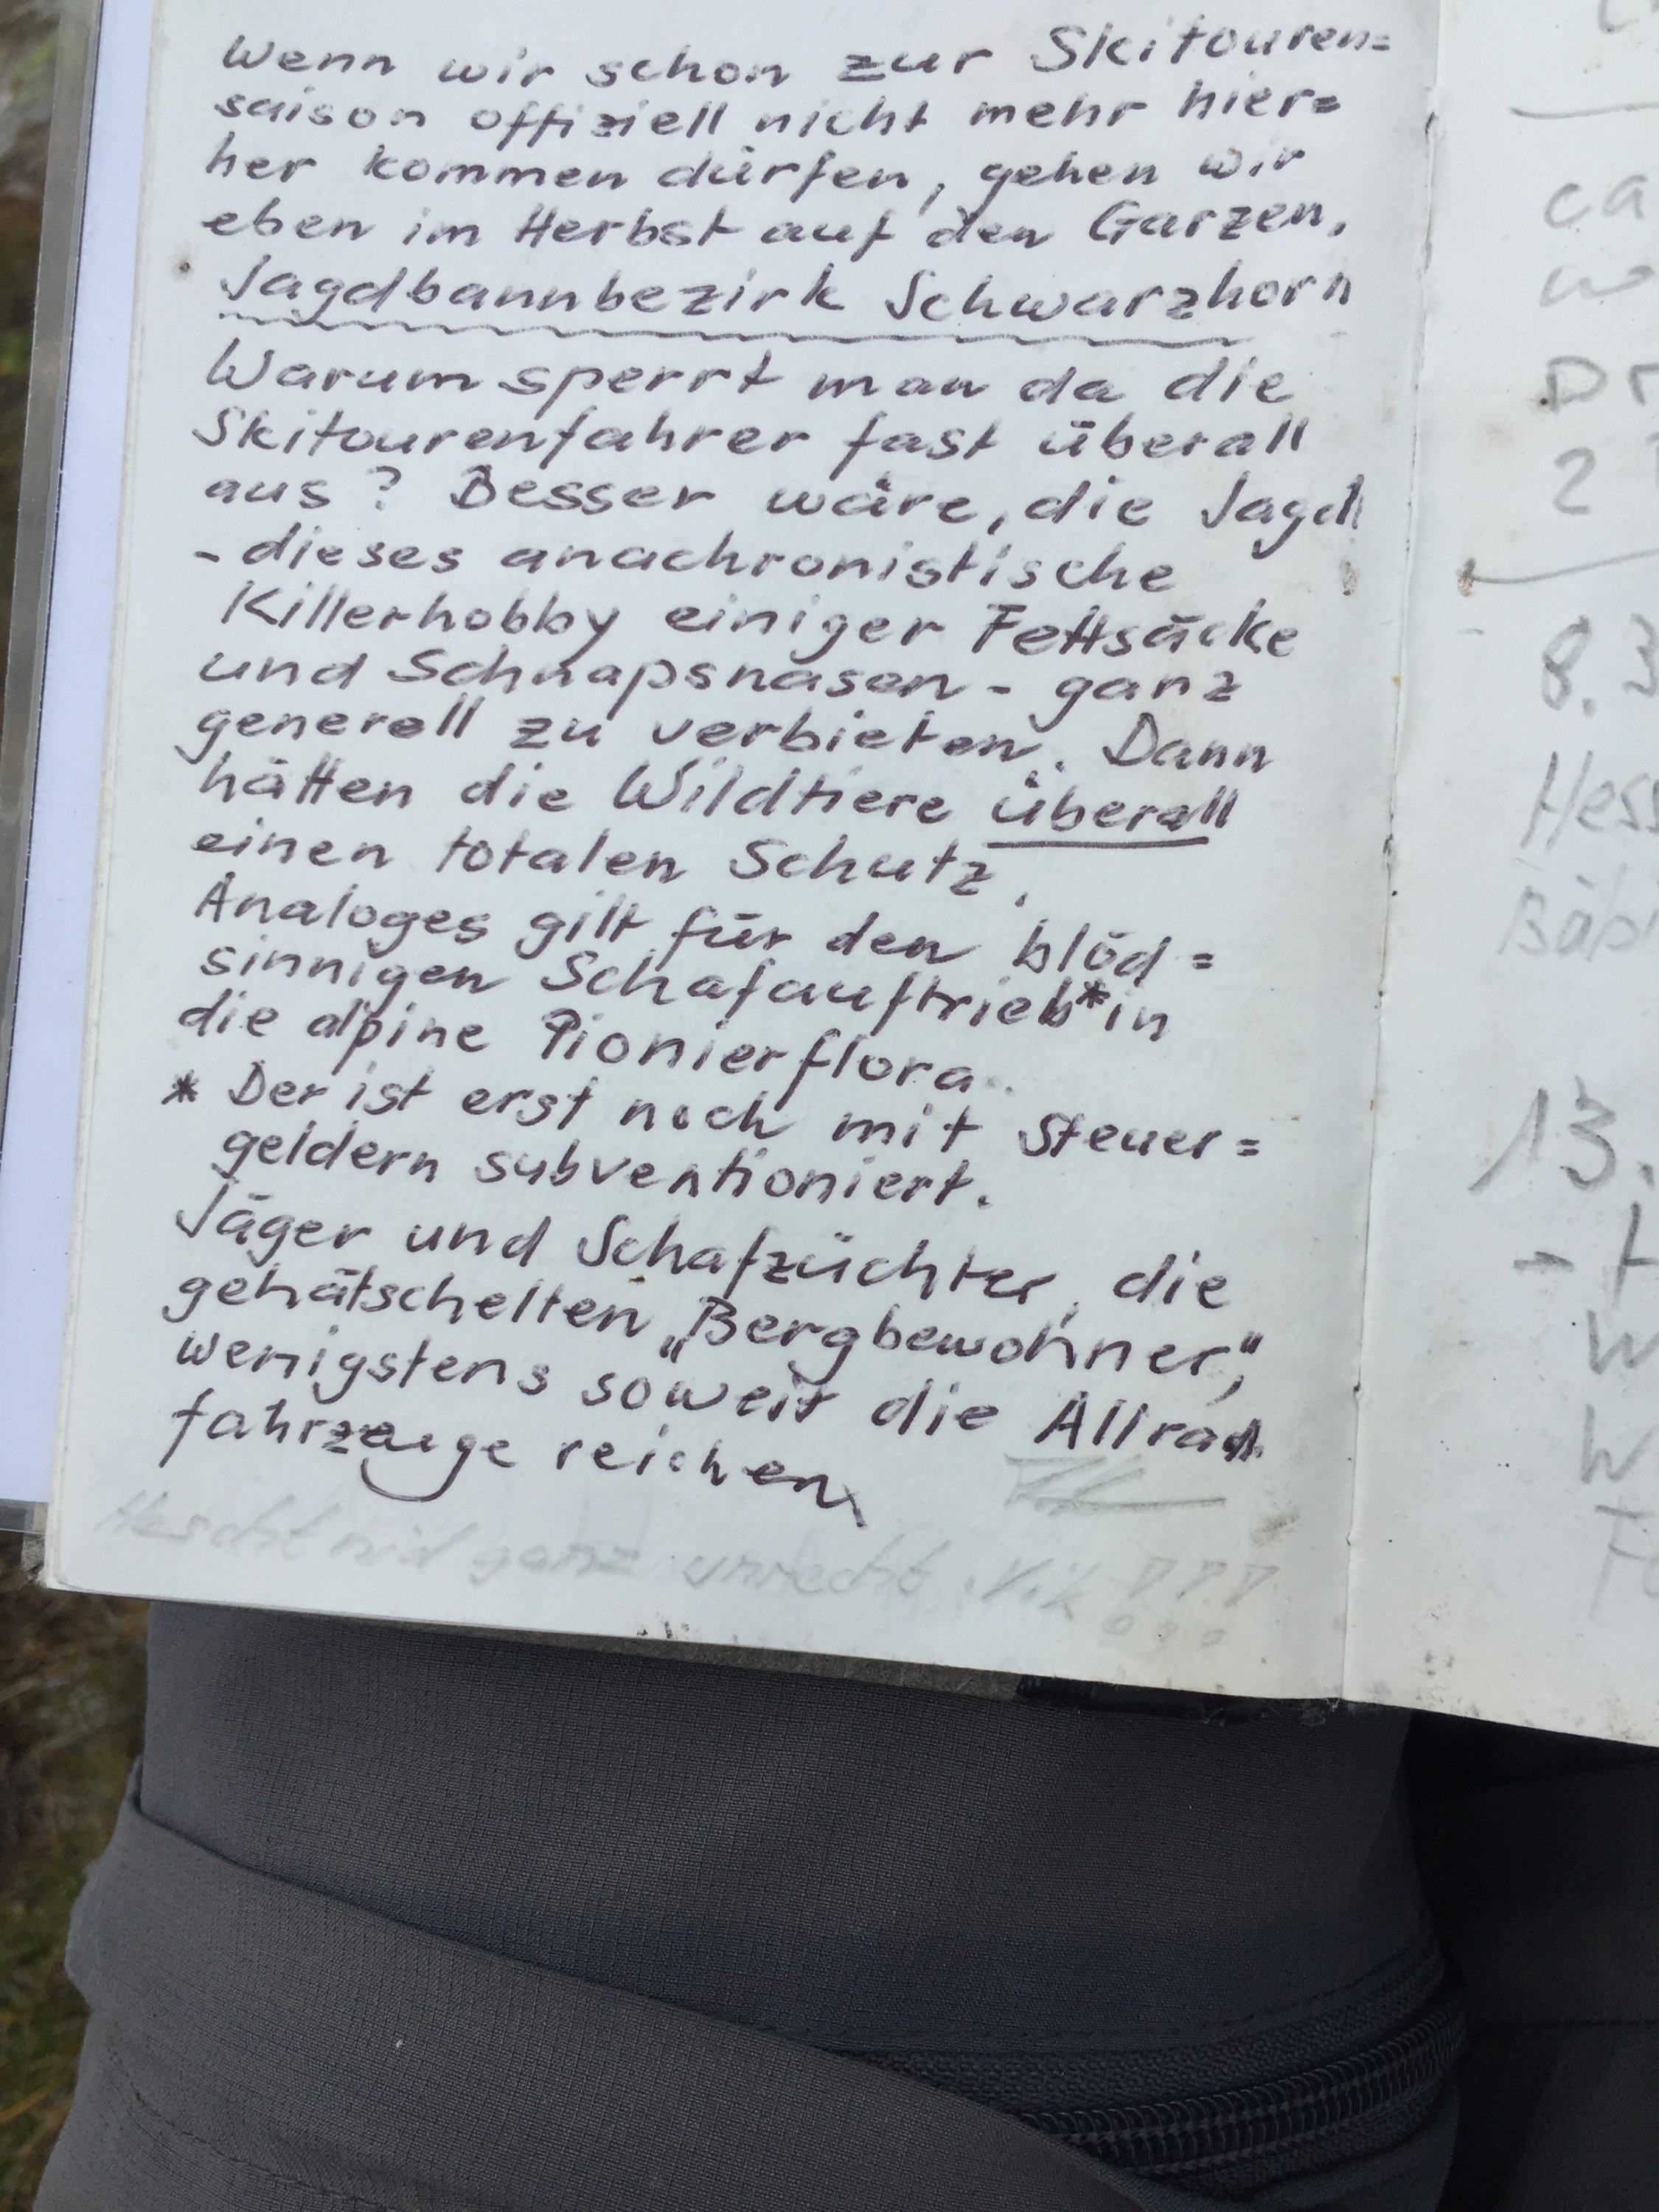 Wenn wir schon zur Skitouren=
saison offiziell nicht mehr hier=
her kommen dürfen, gehen wir
eben im Herbst auf den Garzen,
Jagdbannbezirk Schwarzhorn
Warum sperrt man da die
Skitourenfahrer fast überall
aus? Besser wäre, die Jagd
- dieses anachronistische
Killerhobby einiger Fettsäcke
und Schnapsnasen - ganz
generell zu verbieten. Dann
hätten die Wildtiere überall
einen totalen Schutz.
Analoges gilt für den blöd=
sinnigen Schafauftrieb* in
die alpine Pionierflora.
* Der ist erst noch mit Steuer=
geldern subventioniert.
Jäger und Schafzüchter, die
gehätschelten „Bergbewohner",
wenigstens soweit die Allrad
fahrzeuge reichen
nid ganz unrecht.
ca
Dr
2
8. 3
Hess
Bäbi
13.
- H
W
W